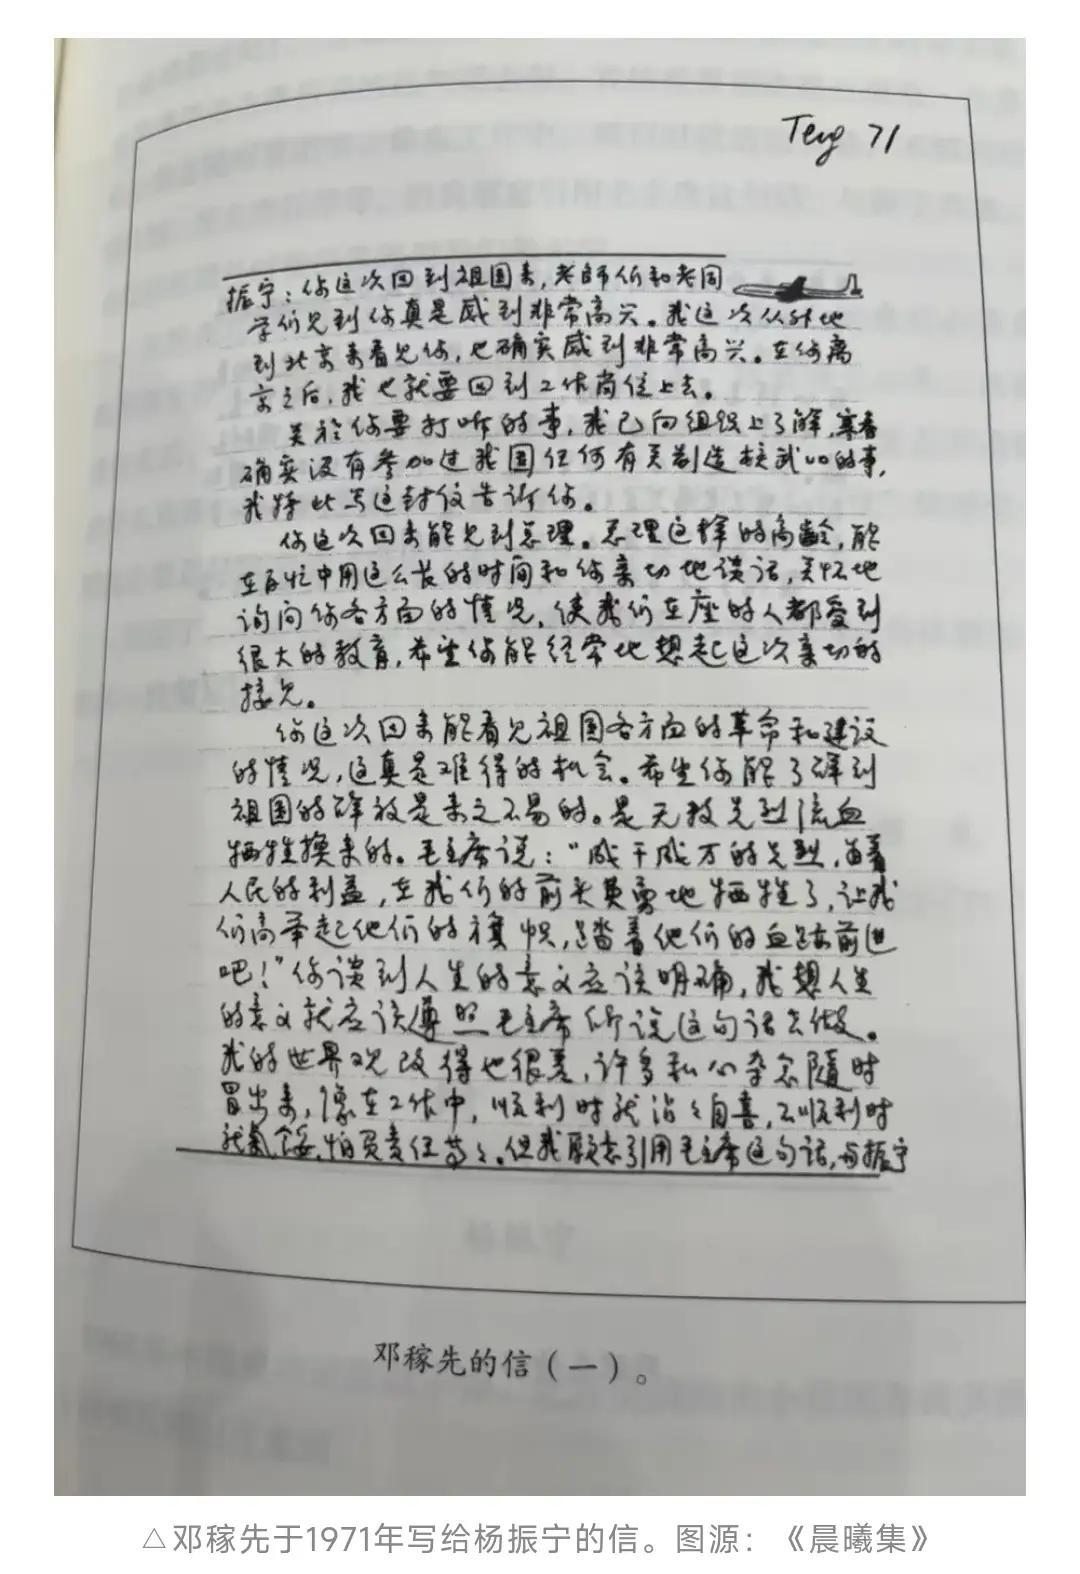 Teng 71
振宁：你这次回到祖国来，老师们和老同
学们见到你真是感到非常高兴。我这次从外地
到北京来看见你，也确实感到非常高兴。在你离
京之后，我也就要回到工作岗位上去。
关于你要打听的事，我已向组织上了解，寒春
确实没有参加过我国任何有关制造核武器的事，
我特此写这封信告诉你。
你这次回来能见到总理。总理这样的高龄，能
在百忙中用这么长的时间和你亲切地谈话，关怀地
询问你各方面的情况，使我们在座的人都受到
很大的教育，希望你能经常地想起这次亲切的
接见。
你这次回来能看见祖国各方面的革命和建设
的情况，这真是难得的机会。希望你能了解到
祖国的解放是来之不易的。是无数先烈流血
牺牲换来的。毛主席说：“成千成万的先烈，为着
人民的利益，在我们的前头英勇地牺牲了，让我
们高举起他们的旗帜，踏着他们的血迹前进
吧！”你谈到人生的意义应该明确，我想人生
的意义就应该遵照毛主席所说这句话去做。
我的世界观改得也很差，许多私心杂念随时
冒出来，像在工作中，顺利时就沾沾自喜，不顺利时
就气馁，怕负责任等等。但我愿意引用毛主席这句话，与振宁
邓稼先的信（一）。
△邓稼先于1971年写给杨振宁的信。图源：《晨曦集》